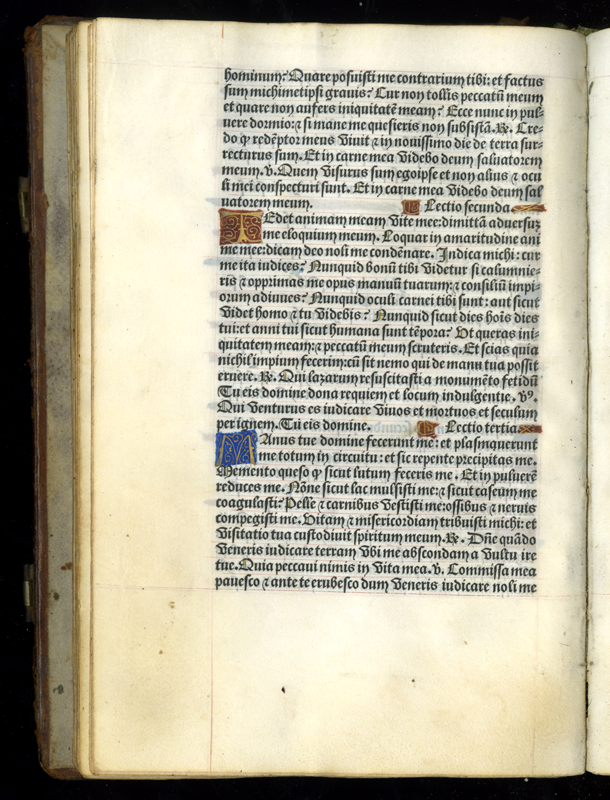 hominum? Quare posuisti me contrarium tibi: et factus
sum michimetipsi grauis? Cur non tollis peccatū meum
et quare non aufers iniquitatē meam? Ecce nunc in pul-
uere dormio: ⁊ si mane me quesieris non subsistā. ℟. Cre-
do ꝙ redēptor meus viuit ⁊ in nouissimo die de terra sur-
recturus sum. Et in carne mea videbo deum saluatorem
meum. ℣. Quem visurus sum egoipse et non alius ⁊ ocu
li mei conspecturi sunt. Et in carne mea videbo deum sal
uatorem meum. Lectio secunda.
TEdet animam meam vite mee: dimittā aduersuȝ
me eloquium meum. Loquar in amaritudine ani
me mee: dicam deo noli me condēnare. Indica michi: cur
me ita iudices? Nunquid bonū tibi videtur si calumnie-
ris ⁊ opprimas me opus manuū tuarum: ⁊ consiliū impi-
orum adiuues? Nunquid oculi carnei tibi sunt: aut sicut
videt homo ⁊ tu videbis? Nunquid sicut dies hoīs dies
tui: et anni tui sicut humana sunt tēpora? Vt queras ini-
quitatem meam: ⁊ peccatū meum scruteris. Et scias quia
nichil impium fecerim: cū sit nemo qui de manu tua possit
eruere. ℟. Qui lazarum resuscitasti a monumēto fetidū
Tu eis domine dona requiem et locum indulgentie. ℣ꝰ.
Qui venturus es iudicare viuos et mortuos et seculum
per ignem. Tu eis domine. Lectio tertia.
MAnus tue domine fecerunt me: et plasmauerunt
me totum in circuitu: et sic repente precipitas me.
Memento queso ꝙ sicut lutum feceris me. Et in puluerē
reduces me. Nōne sicut lac mulsisti me: ⁊ sicut caseum me
coagulasti? Pelle ⁊ carnibus vestisti me: ossibus ⁊ neruis
compegisti me. Vitam ⁊ misericordiam tribuisti michi: et
visitatio tua custodiuit spiritum meum. ℟. Dn̄e quādo
veneris iudicare terram vbi me abscondam a vultu ire
tue. Quia peccaui nimis in vita mea. ℣. Commissa mea
pauesco ⁊ ante te erubesco dum veneris iudicare noli me